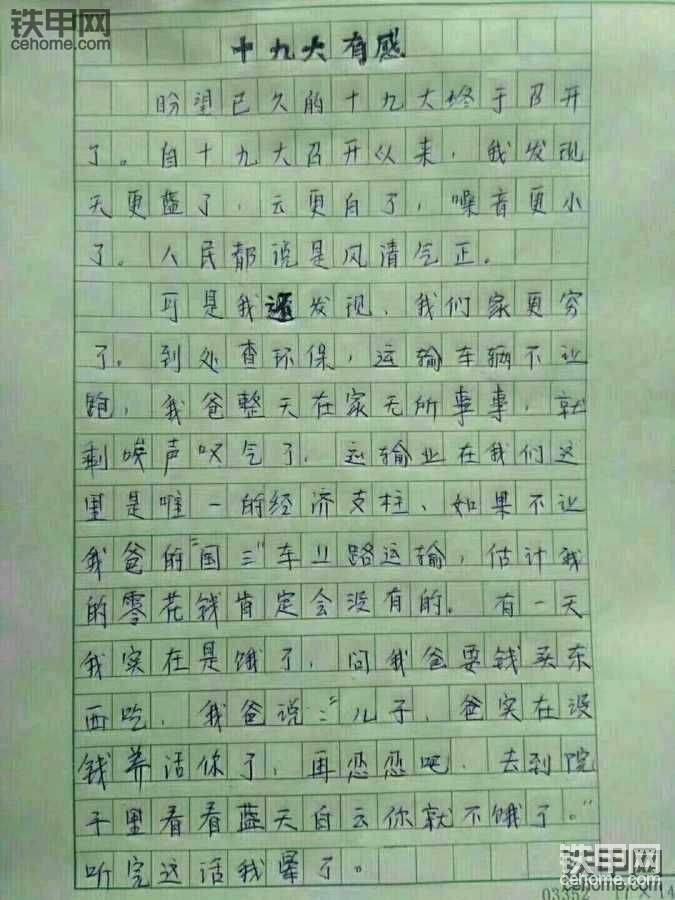 铁甲网
cehome.com
十九大有感
盼望已久的十九大终于召开
了。自十九大召开以来，我发现
天更蓝了，云更白了，噪音更小
了。人民都说是风清气正。
可是我还发现，我们家更穷
了。到处查环保，运输车辆不让
跑，我爸整天在家无所事事，就
剩唉声叹气了，运输业在我们这
里是唯一的经济支柱、如果不让
我爸的"国三"车上路运输，估计我
的零花钱肯定会没有的。有一天
我实在是饿了，问我爸要钱买东
西吃，我爸说："儿子，爸实在没
钱养活你了，再忍忍吧，去到院
子里看看蓝天白云你就不饿了。"
听完这话我晕了。
铁甲网
cehome.com
03352 17×14